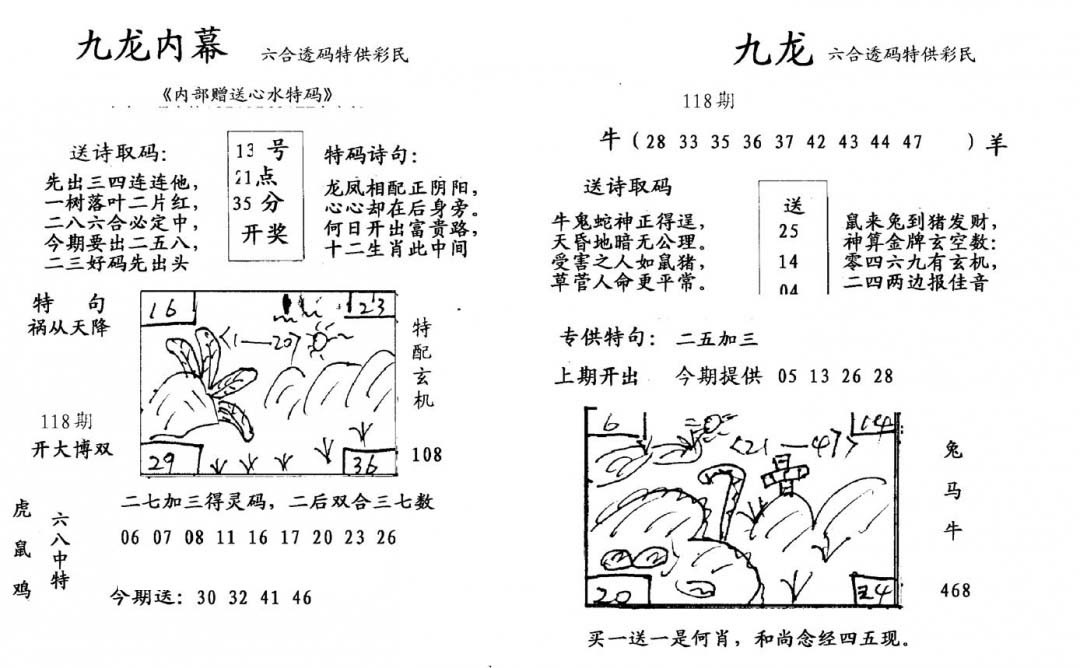 九龙内幕 六合透码特供彩民
《内部赠送心水特码》
送诗取码：
先出三四连连他，
一树落叶二片红，
二八六合必定中，
今期要出二五八，
二三好码先出头
13 号
21 点
35 分
开奖
特码诗句：
龙凤相配正阴阳，
心心却在后身旁。
何日开出富贵路，
十二生肖此中间
特 句
祸从天降
118期
开大博双
16
23
1—20
29
36
特配玄机
108
二七加三得灵码，二后双合三七数
虎鼠鸡
六八中特
06 07 08 11 16 17 20 23 26
今期送：30 32 41 46
九龙 六合透码特供彩民
118期
牛（28 33 35 36 37 42 43 44 47 ）羊
送诗取码
牛鬼蛇神正得逞，
天昏地暗无公理。
受害之人如鼠猪，
草菅人命更平常。
送
25
14
04
鼠来兔到猪发财，
神算金牌玄空数：
零四六九有玄机，
二四两边报佳音
专供特句：二五加三
上期开出 今期提供 05 13 26 28
6
14
21—47
20
24
兔
马
牛
468
买一送一是何肖，和尚念经四五现。